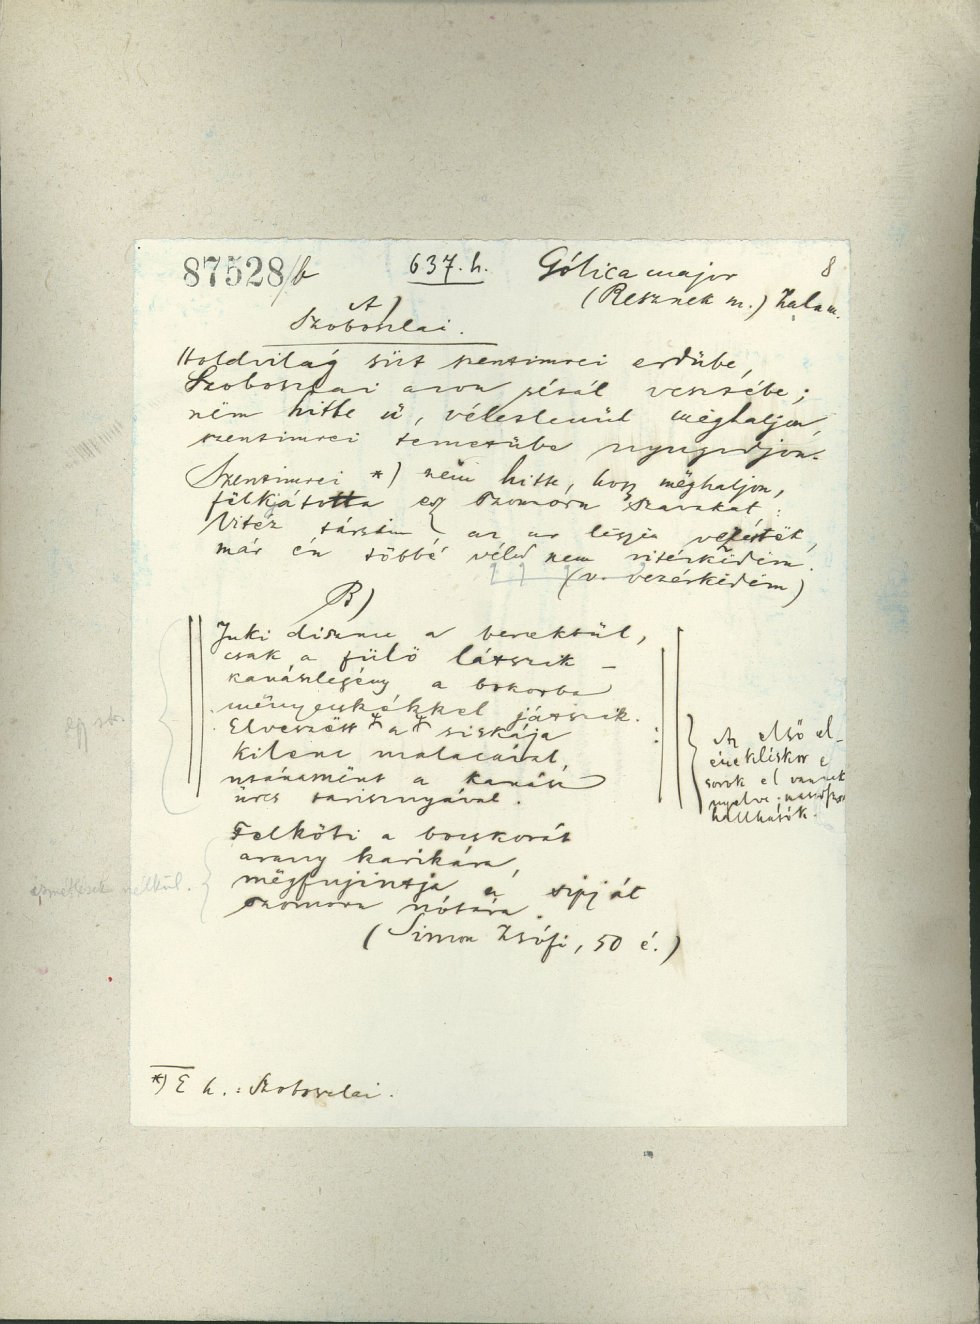 87528/b 637. h. Gólica major 8
(Resznek m.) Zala m.
A)
Szoboszlai.
Holdvilág süt szentimrei erdübe,
Szoboszlai azon sétál vesztébe;
nëm hitte ü, véletlenül mëghaljon,
szentimrei temetübe nyugodjon.
Szentimrei *) nëm hitte, hogy mëghaljon,
fëlkjátotta ez szomoru szavakat:
Vitéz társim az ur legyën vezértëk,
már én többé vélед nem vitézkëdëm.
(v. vezérkëdëm)
B)
Juki disznu a berekbül,
csak a fülö látszik –
kanászlegény a bokorba
mënyecskékkel játszik.
Elveszëtt a siskája
kilenc malacával,
utánamënt a kanász
üres tarisznyával.
egy sk.
Az első el-
éneskléskor e
sorok el vannak
nyelve; másodszor
hallhatók.
Felköti a bocskorát
arany karikára,
mëgfujintja a sipját
szomoru nótára.
ismétlések nélkül.
(Simon Zsófi, 50 é.)
*) E h.: Szoboszlai.